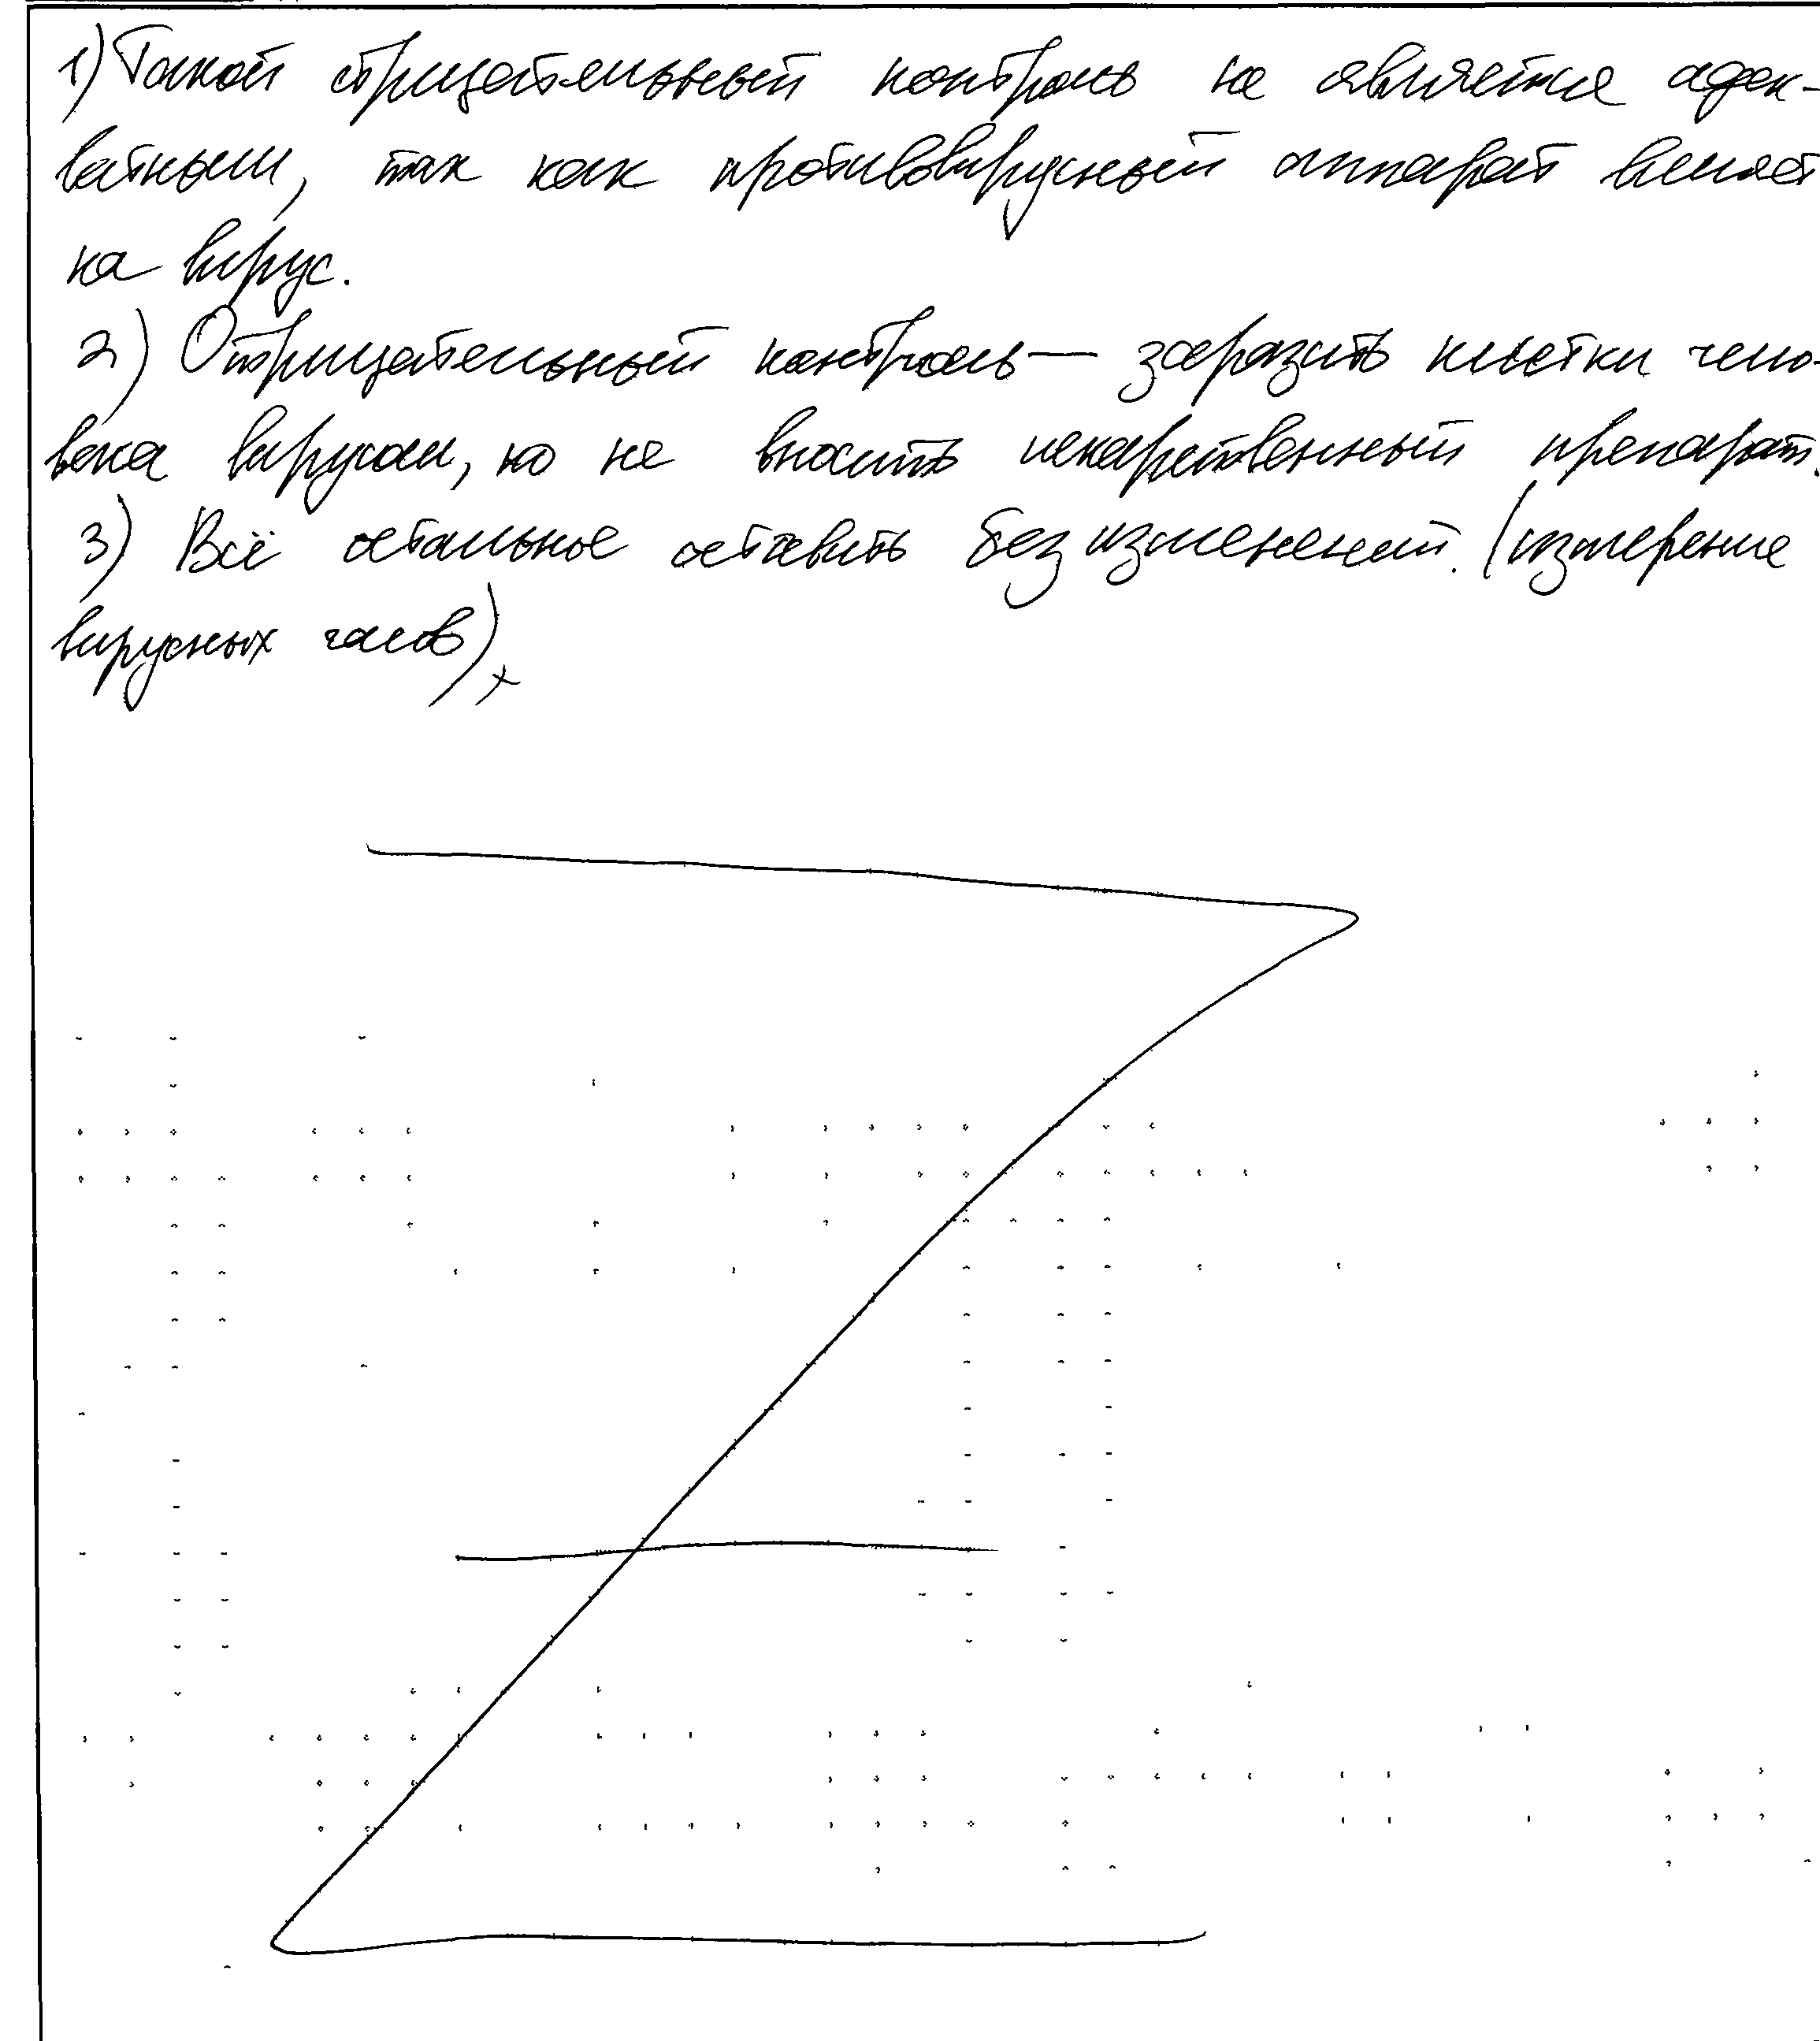 1) Такой отрицательный контроль не является адек-
ватным, так как противовирусный аппарат влияет
на вирус.
2) Отрицательный контроль — заразить клетки чело-
века вирусом, но не вносить лекарственный препарат.
3) Всё остальное оставить без изменений. (измерение
вирусных)